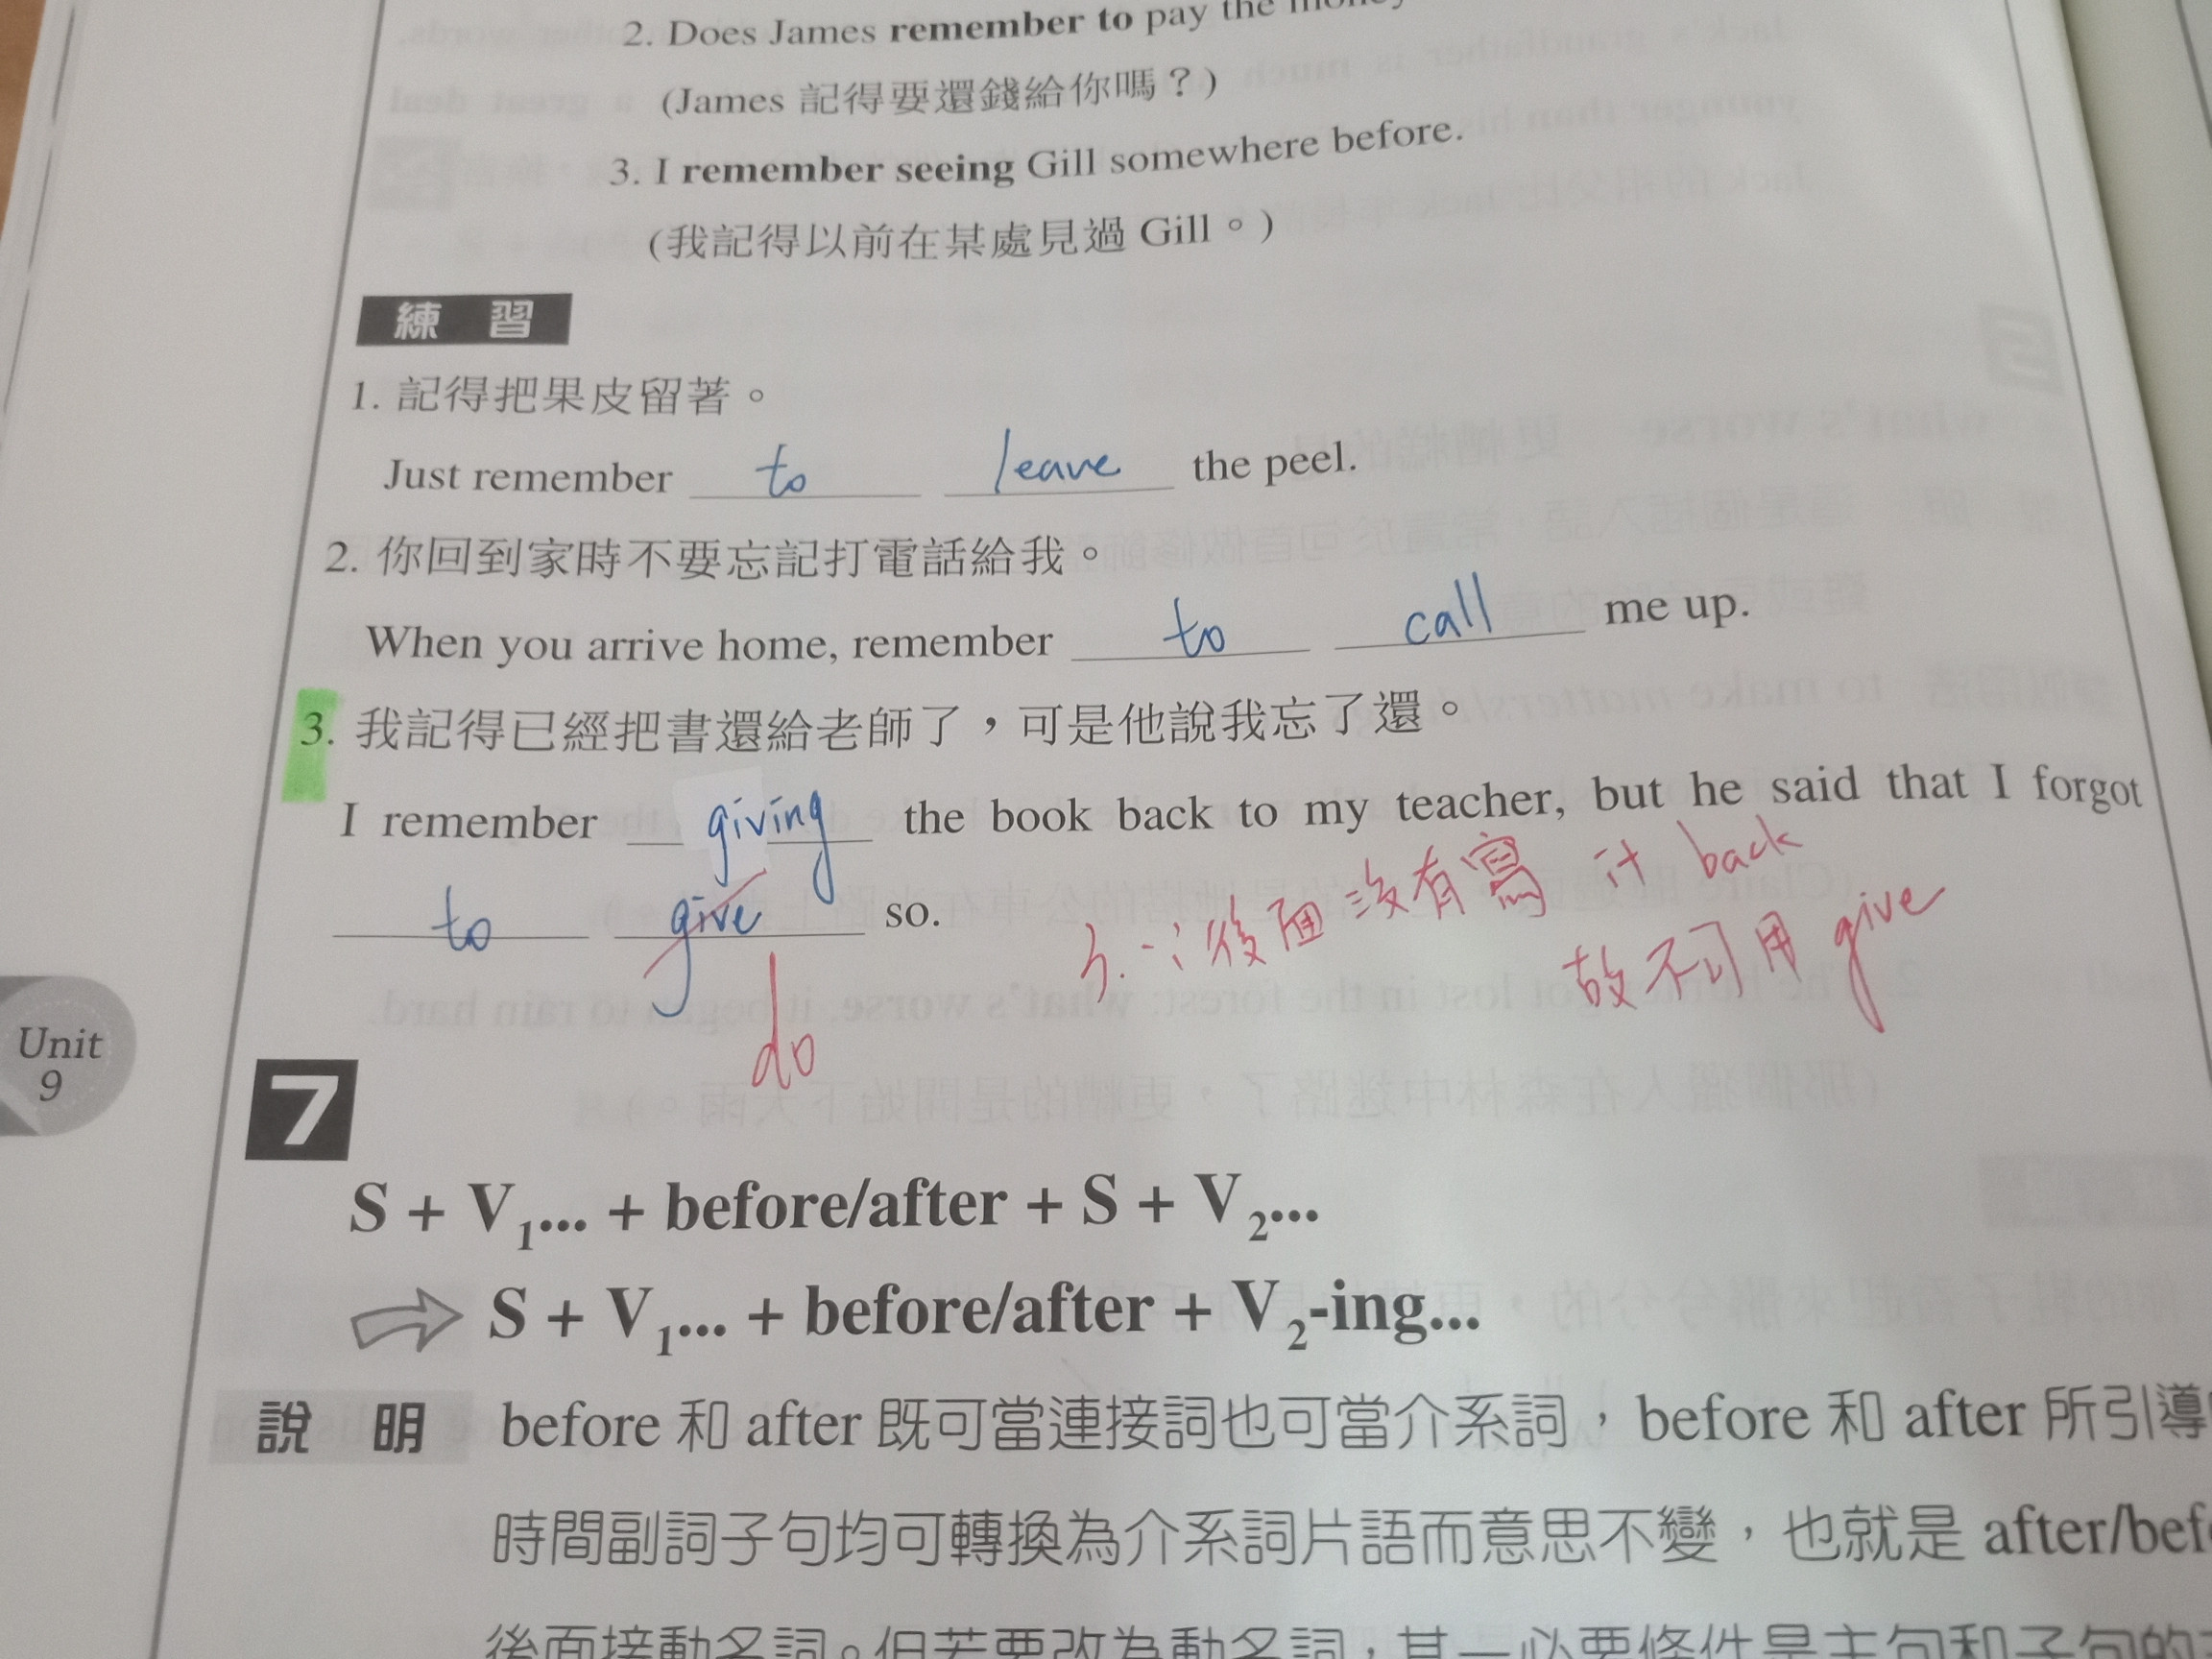 2. Does James remember to pay the money
(James 記得要還錢給你嗎？)
3. I remember seeing Gill somewhere before.
(我記得以前在某處見過 Gill。)
練 習
1. 記得把果皮留著。
Just remember to leave the peel.
2. 你回到家時不要忘記打電話給我。
When you arrive home, remember to call me up.
3. 我記得已經把書還給老師了，可是他說我忘了還。
I remember giving the book back to my teacher, but he said that I forgot
to give so.
do
3. ∵後面沒有寫 it back
故不可用 give
Unit
9
7
S + V1... + before/after + S + V2...
S + V1... + before/after + V2-ing...
說 明 before 和 after 既可當連接詞也可當介系詞，before 和 after 所引導
時間副詞子句均可轉換為介系詞片語而意思不變，也就是 after/bef
後面接動名詞。但若要改為動名詞，其一必要條件是主句和子句的